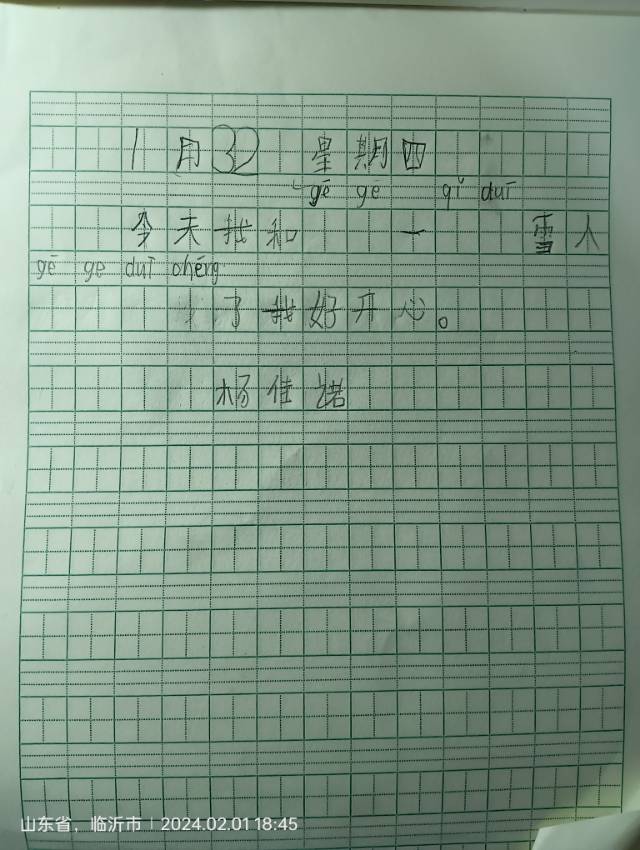 1月32 星期四
gē gē qǐ duī
今天我和一雪人
gē ge duī chéng
了我好开心。
杨佳诺
山东省，临沂市 | 2024.02.01 18:45